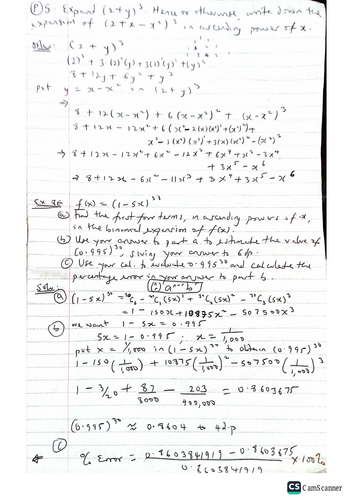 P) 5. Expand (2+y)³. Hence or otherwise, write down the
expansion of (2+x-x²)³ in ascending power of x.
Soln: (2+y)³
(2)³ + 3(2)²(y) + 3(2)(y)² + (y)³
8 + 12y + 6y² + y³
put y = x-x² in (2+y)³
⇒ 8 + 12(x-x²) + 6(x-x²)² + (x-x²)³
8 + 12x - 12x² + 6(x² - 2(x)(x²) + (x²)²) +
x³ - 3(x²)(x²) + 3(x)(x²)² - (x²)³
→ 8 + 12x - 12x² + 6x² - 12x³ + 6x⁴ + x³ - 3x⁴
+ 3x⁵ - x⁶
→ 8 + 12x - 6x² - 11x³ + 3x⁴ + 3x⁵ - x⁶
f(x) = (1-5x)³⁰
(a) Find the first four terms, in ascending powers of x,
in the binomial expansion of f(x).
(b) Use your answer to part a to estimate the value of
(0.995)³⁰, giving your answer to 6dp.
(c) Use your cal. to evaluate 0.995³⁰ and calculate the
percentage error in your answer to part b.
Soln:
(a) (1-5x)³⁰ = ³⁰C₀ - ³⁰C₁(5x) + ³⁰C₂(5x)² - ³⁰C₃(5x)³
= 1 - 150x + 10875x² - 507500x³
(b) we want 1-5x = 0.995
5x = 1-0.995; x = 1/1,000
put x = 1/1,000 in (1-5x)³⁰ to obtain (0.995)³⁰
1 - 150(1/1,000) + 10875(1/1,000)² - 507500(1/1,000)³
1 - 3/20 + 87/8000 - 203/400,000 = 0.8603675
(0.995)³⁰ ≈ 0.8604 to 4d.p
(c)
% Error = 0.8603841919 - 0.8603675 / 0.8603841919 × 100%
CS CamScanner